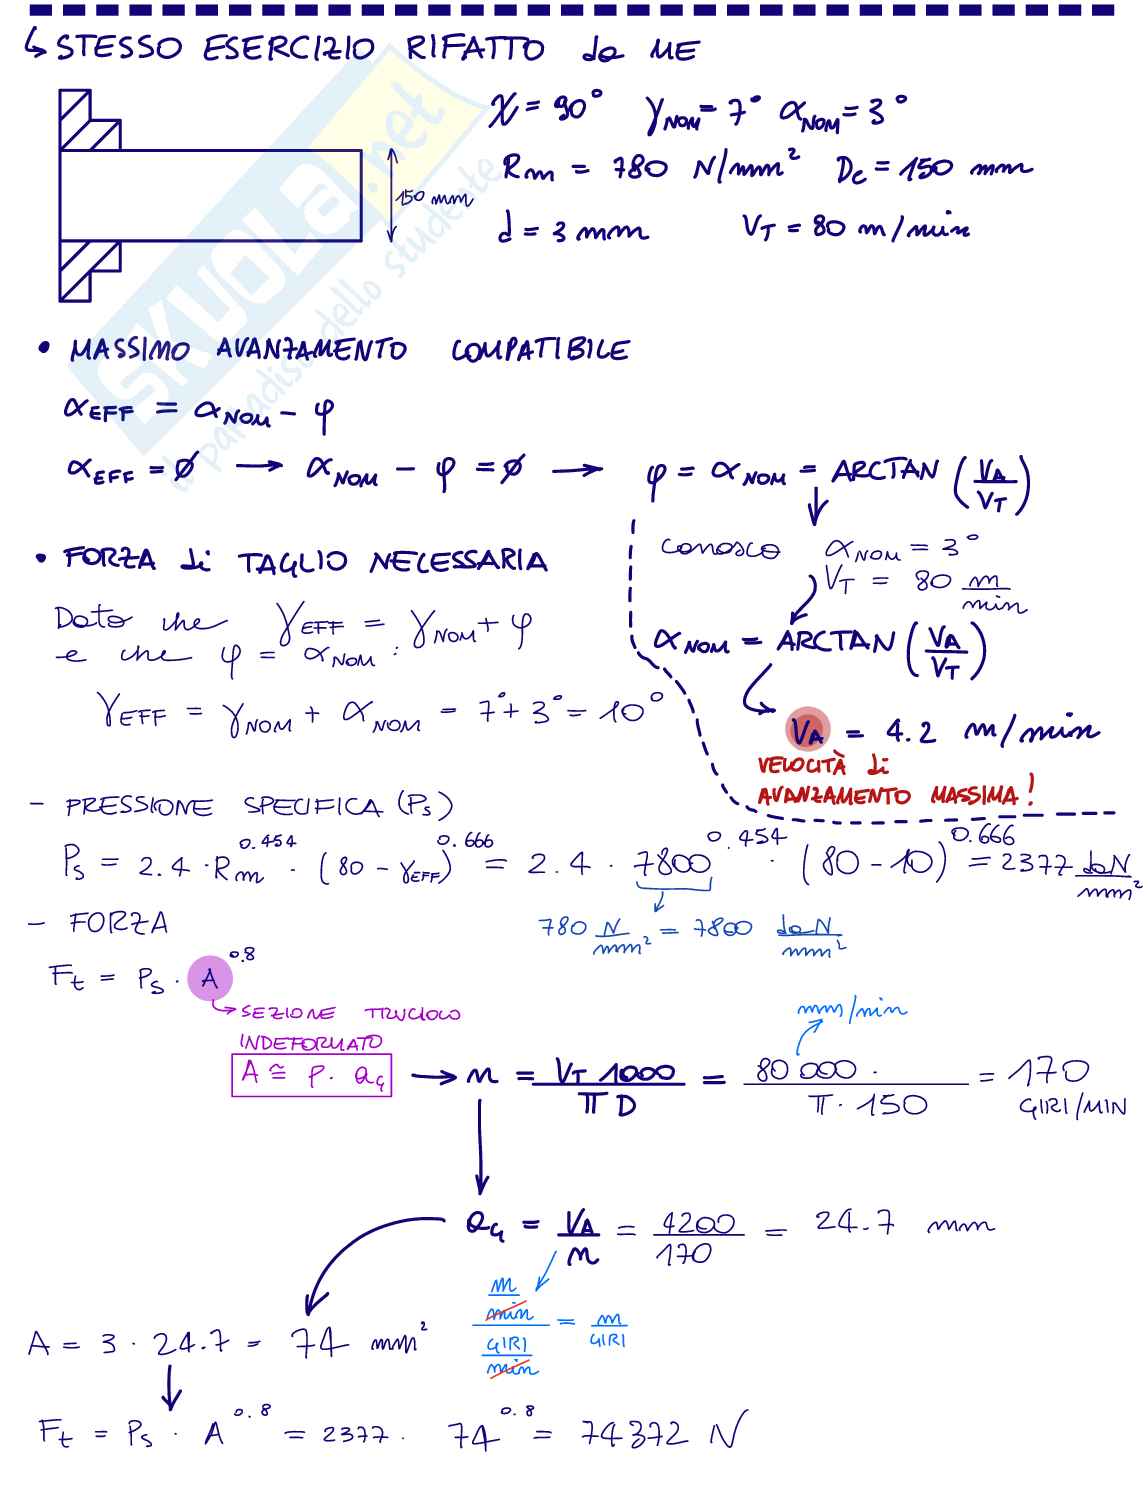 ↳ STESSO ESERCIZIO RIFATTO da ME
χ = 90° γNOM = 7° αNOM = 3°
Rm = 780 N/mm² Dc = 150 mm
150 mm
d = 3 mm VT = 80 m/min
SKUOLA.net
il paradiso dello studente
• MASSIMO AVANZAMENTO COMPATIBILE
αEFF = αNOM - φ
αEFF = ∅ → αNOM - φ = ∅ → φ = αNOM = ARCTAN (VA/VT)
conosco αNOM = 3°
VT = 80 m/min
αNOM = ARCTAN (VA/VT)
VA = 4.2 m/min
VELOCITÀ di
AVANZAMENTO MASSIMA!
• FORZA di TAGLIO NECESSARIA
Dato che γEFF = γNOM + φ
e che φ = αNOM :
γEFF = γNOM + αNOM = 7° + 3° = 10°
- PRESSIONE SPECIFICA (Ps)
Ps = 2.4 · Rm^0.454 · (80 - γEFF)^0.666 = 2.4 · 7800^0.454 · (80 - 10)^0.666 = 2377 daN/mm²
780 N/mm² = 7800 daN/mm²
- FORZA
Ft = Ps · A^0.8
↳ SEZIONE TRUCIOLO
INDEFORMATO
mm/min
A ≅ P · ag → n = VT 1000/π D = 80 000 ·/π · 150 = 170 GIRI/MIN
ag = VA/n = 4200/170 = 24.7 mm
m/min / GIRI/min = m/GIRI
A = 3 · 24.7 = 74 mm²
Ft = Ps · A^0.8 = 2377 · 74^0.8 = 74372 N